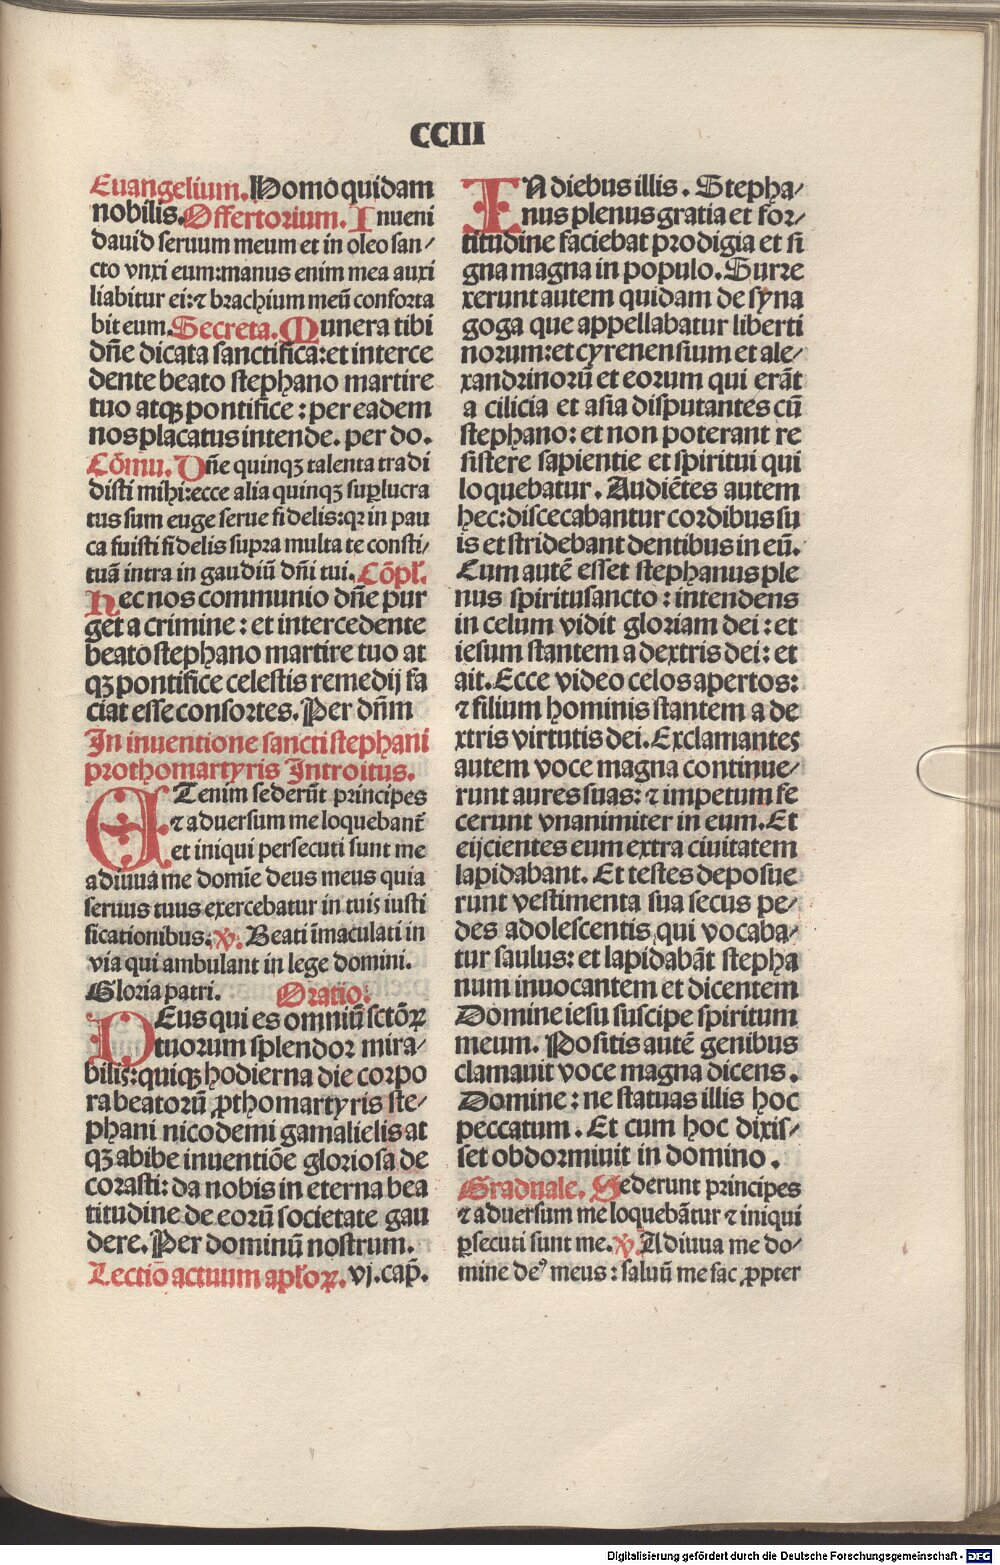 CCIII
Euangelium. Homo quidam
nobilis. Offertorium. Inueni
dauid seruum meum et in oleo san/
cto vnxi eum: manus enim mea auxi
liabitur ei: ⁊ brachium meū conforta
bit eum. Secreta. Munera tibi
dn̄e dicata sanctifica: et interce
dente beato stephano martire
tuo atqꝫ pontifice: per eadem
nos placatus intende. per do.
Cōmu. Dn̄e quinqꝫ talenta tradi
disti mihi: ecce alia quinqꝫ suꝑlucra
tus sum euge serue fidelis: qꝛ in pau
ca fuisti fidelis supra multa te consti/
tuā intra in gaudiū dn̄i tui. Cōpl'.
Hec nos communio dn̄e pur
get a crimine: et intercedente
beato stephano martire tuo at
qꝫ pontifice celestis remedij fa
ciat esse consortes. Per dn̄m
In inuentione sancti stephani
prothomartyris Introitus.
ETenim sederūt principes
⁊ aduersum me loquebant̄
et iniqui persecuti sunt me
adiuua me domīe deus meus quia
seruus tuus exercebatur in tuis iusti
ficationibus: ℣. Beati īmaculati in
via qui ambulant in lege domini.
Gloria patri. Oratio:
DEus qui es omniū sctōꝝ
tuorum splendor mira/
bilis: quiqꝫ hodierna die corpo
ra beatorū ꝓthomartyris ste/
phani nicodemi gamalielis at
qꝫ abibe inuentiōe gloriosa de
corasti: da nobis in eterna bea
titudine de eorū societate gau
dere. Per dominū nostrum.
Lectiō actuum apl'oꝝ. vj. cap̄.
IN diebus illis. Stepha/
nus plenus gratia et for/
titudine faciebat prodigia et si
gna magna in populo. Surre
xerunt autem quidam de syna
goga que appellabatur liberti
norum: et cyrenensium et ale/
xandrinorū et eorum qui erāt
a cilicia et asia disputantes cū
stephano: et non poterant re
sistere sapientie et spiritui qui
loquebatur. Audiētes autem
hec: discecabantur cordibus su
is et stridebant dentibus in eū.
Cum autē esset stephanus ple
nus spiritusancto: intendens
in celum vidit gloriam dei: et
iesum stantem a dextris dei: et
ait. Ecce video celos apertos:
⁊ filium hominis stantem a de
xtris virtutis dei. Exclamantes
autem voce magna continue/
runt aures suas: ⁊ impetum fe
cerunt vnanimiter in eum. Et
eijcientes eum extra ciuitatem
lapidabant. Et testes deposue
runt vestimenta sua secus pe/
des adolescentis qui vocaba/
tur saulus: et lapidabāt stepha
num inuocantem et dicentem
Domine iesu suscipe spiritum
meum. Positis autē genibus
clamauit voce magna dicens.
Domine: ne statuas illis hoc
peccatum. Et cum hoc dixis/
set obdormiuit in domino.
Graduale. Sederunt principes
⁊ aduersum me loquebātur ⁊ iniqui
ꝑsecuti sunt me. ℣. Adiuua me do/
mine deꝰ meus: saluū me fac ꝓpter
Digitalisierung gefördert durch die Deutsche Forschungsgemeinschaft - DFG